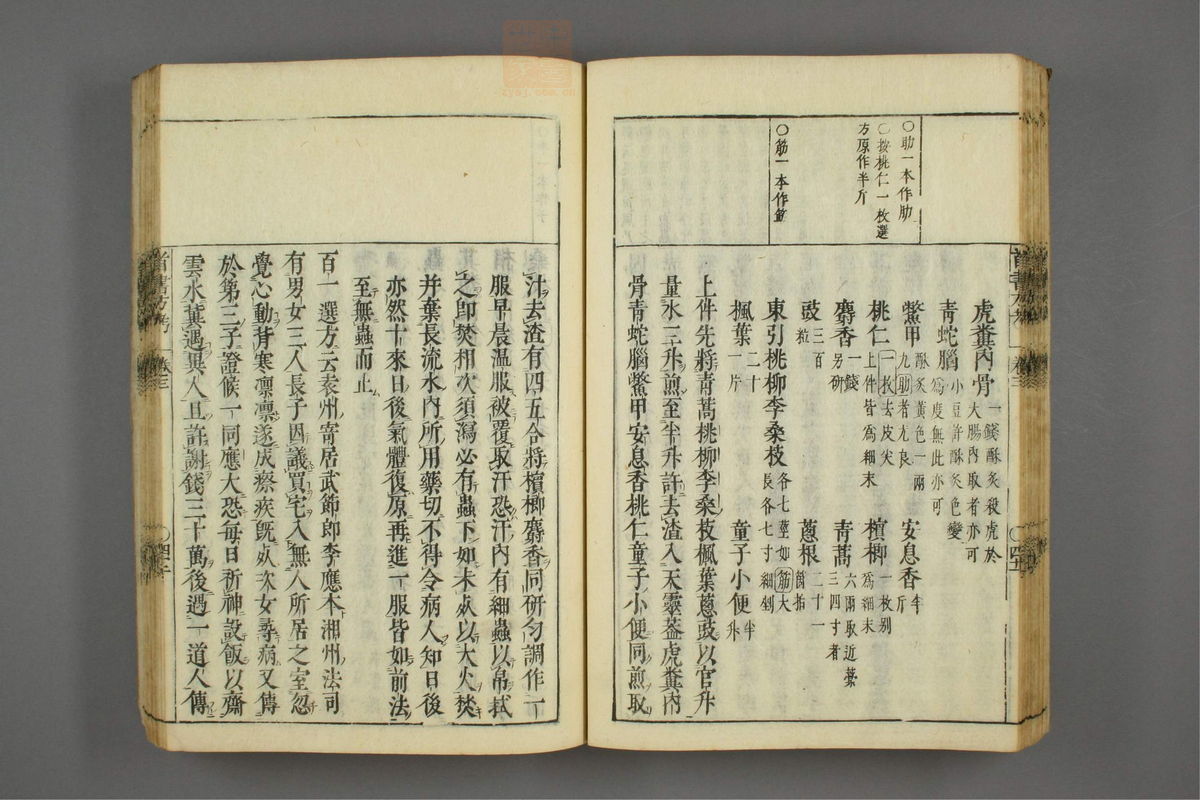 〇肋一本作肋
〇按桃仁一枚選
方原作半斤
〇筋一本作筯
虎糞內骨一錢酥炙殺虎於
大腸內取者亦可
青蛇腦小豆許酥炙色變
為度無此亦可
鱉甲酥炙黃色一兩
九肋者尤良
安息香半
斤
桃仁一枚去皮尖
上件皆為細末
檳榔一枚別
為細末
麝香一錢
另研
青蒿六兩取近藁
三四寸者
豉三百
粒
蔥根二十一
箇拍
東引桃柳李桑枝各七莖如筯大
長各七寸細剉
楓葉二十
一片
童子小便半
升
上件先將青蒿桃柳李桑枝楓葉蔥豉以官升
量水三升煎至半升許去渣入天靈蓋虎糞內
骨青蛇腦鱉甲安息香桃仁童子小便同煎取
汁去渣有四五合將檳榔麝香同研勻調作一
服早晨溫服被覆取汗恐汗內有細蟲以帛拭
之即焚相次須瀉必有蟲下如未死以大火焚
并棄長流水內所用藥切不得令病人知日後
亦然十來日後氣體復原再進一服皆如前法
至無蟲而止
百一選方云袁州寄居武節郎李應本湘州法司
有男女三人長子因議買宅入無人所居之室忽
覺心動背寒凜凜遂成瘵疾既死次女尋病又傳
於第三子證候一同應大恐每日祈神設飯以齋
雲水董遇異人且許謝錢三十萬後遇一道人傳